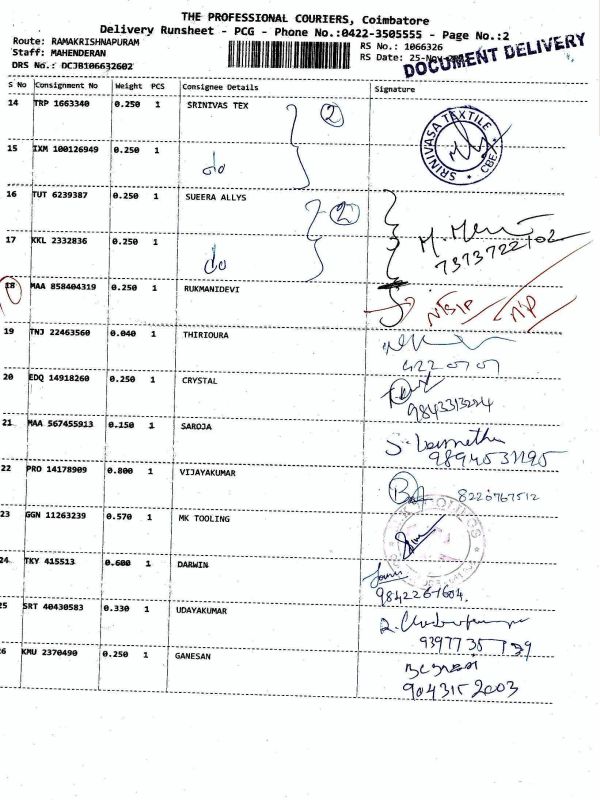 THE PROFESSIONAL COURIERS, Coimbatore
Delivery Runsheet - PCG - Phone No.:0422-3505555 - Page No.:2
Route: RAMAKRISHNAPURAM
RS No.: 1066326
Staff: MAHENDERAN
RS Date: 25-Nov
DRS No.: DCJB106632602
DOCUMENT DELIVERY
S No Consignment No Weight PCS Consignee Details Signature
14 TRP 1663340 0.250 1 SRINIVAS TEX 2
SRINIVASA TEXTILE * CBE *
15 IXM 100126949 0.250 1 do
16 TUT 6239387 0.250 1 SUEERA ALLYS 2
17 KKL 2332836 0.250 1 do
7373722102
18 MAA 858404319 0.250 1 RUKMANIDEVI
19 TNJ 22463560 0.040 1 THIRIOURA
20 EDQ 14918260 0.250 1 CRYSTAL
21 MAA 567455913 0.150 1 SAROJA
22 PRO 14178909 0.800 1 VIJAYAKUMAR
8220767512
23 GGN 11263239 0.570 1 MK TOOLING
24 TKY 415513 0.600 1 DARWIN
9842267604.
25 SRT 40430583 0.330 1 UDAYAKUMAR
26 KMU 2370490 0.250 1 GANESAN
9043152003